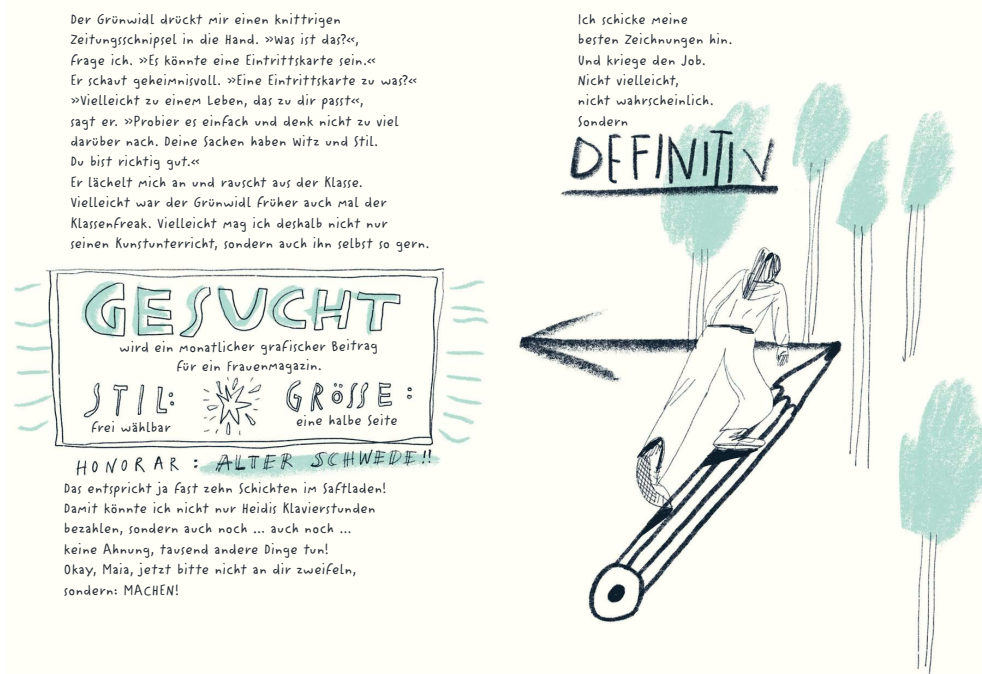 Der Grünwidl drückt mir einen knittrigen
Zeitungsschnipsel in die Hand. »Was ist das?«,
frage ich. »Es könnte eine Eintrittskarte sein.«
Er schaut geheimnisvoll. »Eine Eintrittskarte zu was?«
»Vielleicht zu einem Leben, das zu dir passt«,
sagt er. »Probier es einfach und denk nicht zu viel
darüber nach. Deine Sachen haben Witz und Stil.
Du bist richtig gut.«
Er lächelt mich an und rauscht aus der Klasse.
Vielleicht war der Grünwidl früher auch mal der
Klassenfreak. Vielleicht mag ich deshalb nicht nur
seinen Kunstunterricht, sondern auch ihn selbst so gern.
GESUCHT
wird ein monatlicher grafischer Beitrag
für ein Frauenmagazin.
STIL:
frei wählbar
GRÖSSE:
eine halbe Seite
HONORAR: ALTER SCHWEDE!!
Das entspricht ja fast zehn Schichten im Saftladen!
Damit könnte ich nicht nur Heidis Klavierstunden
bezahlen, sondern auch noch ... auch noch ...
keine Ahnung, tausend andere Dinge tun!
Okay, Maia, jetzt bitte nicht an dir zweifeln,
sondern: MACHEN!
Ich schicke meine
besten Zeichnungen hin.
Und kriege den Job.
Nicht vielleicht,
nicht wahrscheinlich.
Sondern
DEFINITIV